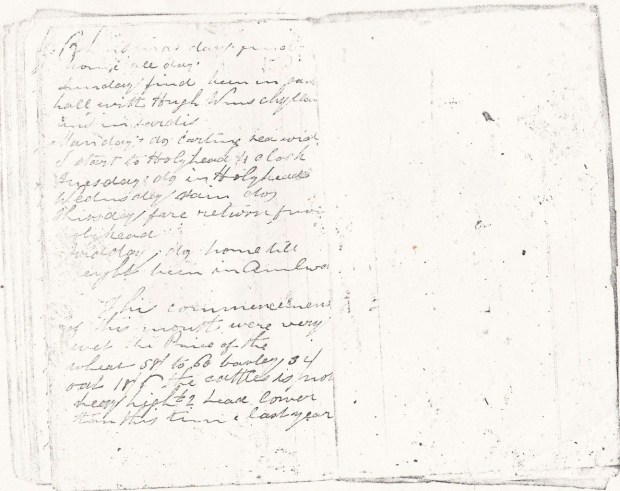 Christmas day find
home all day
Sunday find been in
hall with Hugh Wms chyllan
and in sardis
Monday; do carting sea wid
I start to Holyhead 4 clock
Tuesday; do in Holyhead
Wednesday rain do
Thirsday fare return from
Holyhead
Fridday; do home till
neight been in Amlwc
This commencement
of this mount were very
wet the Price of the
wheat 58/ to 60 barley 34
oat 18/ the cattles is not
very high £2 head lower
than this time last year